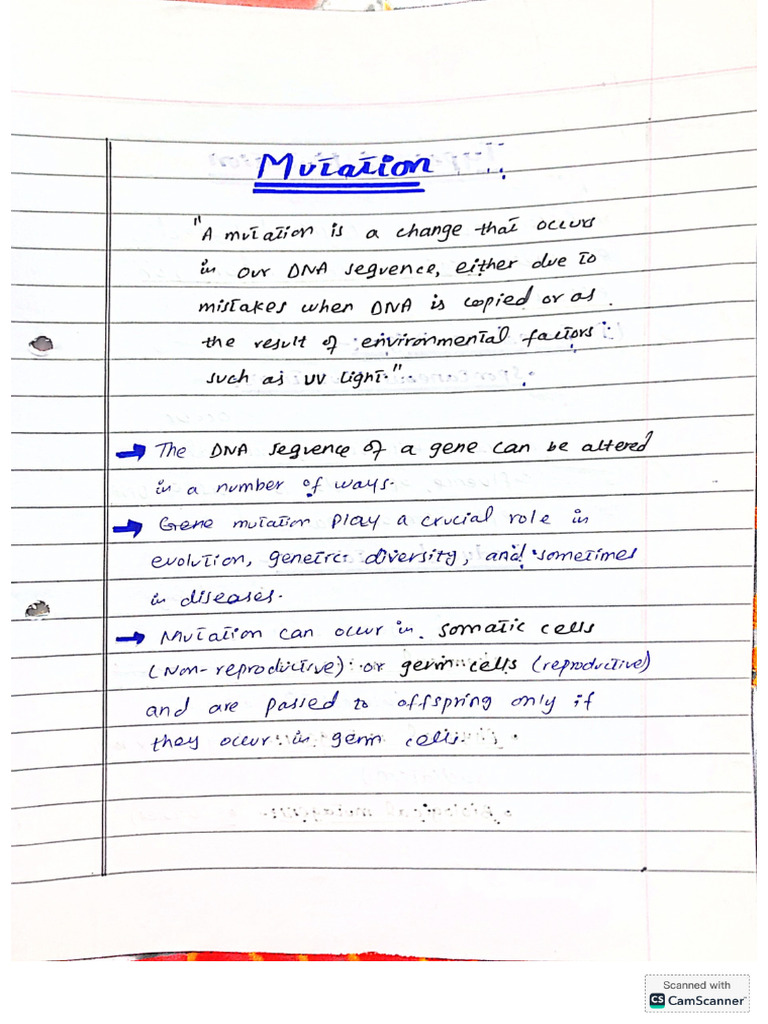 Mutation
"A mutation is a change that occurs
in our DNA sequence, either due to
mistakes when DNA is copied or as
the result of environmental factors
such as UV light."
→ The DNA sequence of a gene can be altered
in a number of ways.
→ Gene mutation play a crucial role in
evolution, genetic diversity, and sometimes
in diseases.
→ Mutation can occur in somatic cells
(Non-reproductive) or germ cells (reproductive)
and are passed to offspring only if
they occur in germ cells.
Scanned with
CS CamScanner